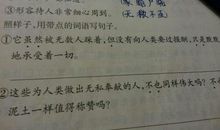 ③形容待人非常细心周到。(
照样子,用带点的词语写句子。
①它虽然被无数人踩着,但没有向人类要过报酬,只是默默
地承受着一切。
②这些为人类做出无私奉献的人,不也同样伟大吗?不
泥土一样值得称赞吗?